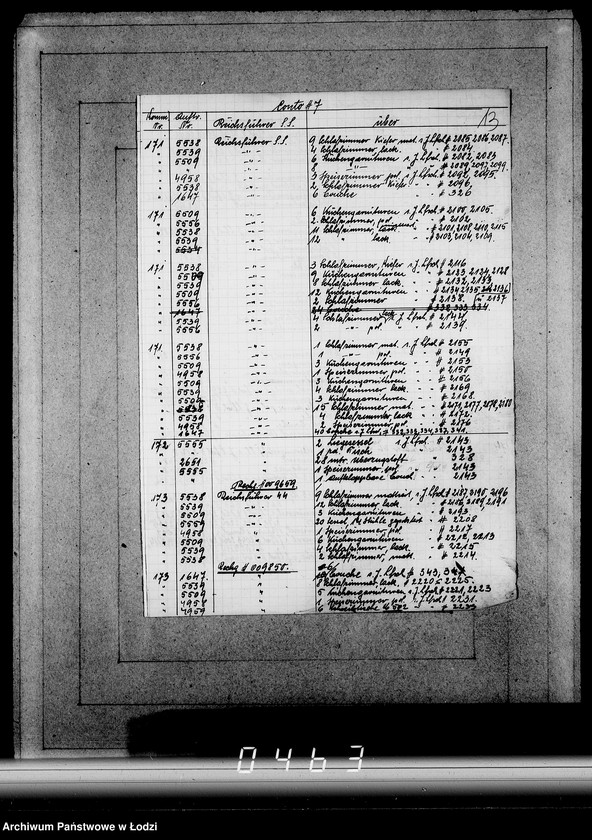 Conto # 7
Komm. Nr. Auftr. Nr. Reichsführer S.S. über 13
171 5538 Reichsführer S.S. 9 Schlafzimmer Kiefer mat. s. J. Lfsch # 2085, 2086, 2087.
" 5539 " 4 Schlafzimmer lack. " # 2084
" 5509 " 6 Küchengarnituren s. J. Lfsch # 2082, 2083
" " 8 " # 2089, 2097, 2099.
" 4958 " 3 Speisezimmer pol. s. J. Lfsch # 2092, 2095.
" 5538 " 2 Schlafzimmer Kiefer " # 2096,
" 1647 " 6 Couche " # 326
171 5509 " 6 Küchengarnituren s. J. Lfsch # 2100, 2105.
" 5556 " 2 Schlafzimmer, pol. " # 2102,
" 5538 " 11 Schlafzimmer, " # 2101, 2108, 2110, 2115
" 5539 " 12 " lack. " # 2103, 2104, 2109.
" 5537 "
171 5538 " 3 Schlafzimmer, Kiefer s. J. Lfsch # 2116
" 5509 " 9 Küchengarnituren " # 2133, 2124, 2128
" 5539 " 8 Schlafzimmer lack. " # 2132, 2133
" 5509 " 12 Küchengarnituren " # 2134, 2135, 2136
" 5556 " 2 Schlafzimmer " # 2138. u 2137
" 1647 " 24 Couche # 338, 333, 334
" 5539 " 4 Schlafzimmer lack s. J. Lfsch # 2142
" 5556 " 2 " pol. " # 2139.
171. 5538 " 1 Schlafzimmer mat. s. J. Lfsch # 2155
" 5556 " 1 " pol. " # 2149
" 5509 " 3 Küchengarnituren " # 2153
" 4958 " 1 Speisezimmer pol. " # 2150
" 5509 " 3 Küchengarnituren " # 2156
" 5539 " 4 Schlafzimmer lack " # 2169
" 5509 " 3 Küchengarnituren " # 2168.
" 5538 " 15 Schlafzimmer, mat. " # 2175, 2177, 2178, 2180
" 5539 " 4 Schlafzimmer lack. " # 2172.
" 4958 " 1 Speisezimmer pol. " # 2176
" 1647 " 40 Couche s. J. Lfsch # 332, 332, 334, 337, 341.
172 5555 " 2 Liegesessel s. J. Lfsch # 2143
" " 1 pol. Tisch " # 2143
" 2651 " 28 mtr. Überzugstoff " # 328
" 5555 " 1 Speisezimmer, pol " # 2143
" " 1 Aufklappbare Couch " # 2143
Rech. # 009659
173 5538 Reichsführer SS 9 Schlafzimmer mattiert s. J. Lfsch # 2187, 2190, 2196
" 5539 " 12 Schlafzimmer lack. " # 2186, 2189, 2191
" 5509 " 3 Küchengarnituren " # 2193
" 5559 " 20 Stühle " # 2208
" 4958 " 1 Speisezimmer pol. " # 2217
" 5509 " 6 Küchengarnituren " # 2212, 2213
" 5539 " 4 Schlafzimmer, lack. " # 2215
" 5538 " 2 Schlafzimmer, matt. " # 2214.
Rechg # 009850.
173 1647. " Couche s. J. Lfsch # 343, 344
" 5539 " 8 Schlafzimmer, lack. # 2220, 2225.
" 5509 " 5 Küchengarnituren s. J. Lfsch # 2221, 2223
" 4958 " 1 Speisezimmer pol. s. J. Lfsch # 2231.
" 4959 " 6
0463
Archiwum Państwowe w Łodzi